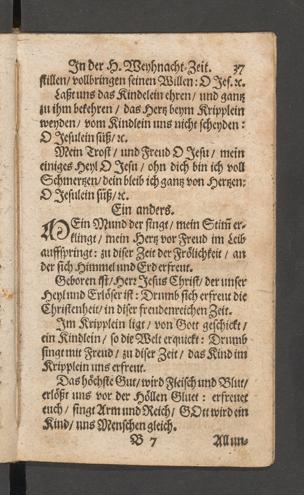 In der H. Weyhnacht-Zeit. 37
stillen/ vollbringen seinen Willen: O Jes. ꝛc.
Laßt uns das Kindelein ehren/ und gantz
zu ihm bekehren/ das Hertz beym Kripplein
weyden/ vom Kindlein uns nicht scheyden:
O Jesulein süß/ ꝛc.
Mein Trost/ und Freud O Jesu/ mein
einiges Heyl O Jesu/ ohn dich bin ich voll
Schmertzen/ dein bleib ich gantz von Hertzen:
O Jesulein süß/ ꝛc.
Ein anders.
MEin Mund der singe/ mein Stim̃ er-
klinge/ mein Hertz vor Freud im Leib
auffspringe: zu diser Zeit der Frölichkeit/ an
der sich Himmel und Erd erfreut.
Geboren ist/ Herr Jesus Christ/ der unser
Heyl und Erlöser ist: Drumb sich erfreut die
Christenheit/ in diser freudenreichen Zeit.
Im Kripplein ligt/ von Gott geschickt/
ein Kindlein/ so die Welt erquickt: Drumb
singt mit Freud/ zu diser Zeit/ das Kind im
Kripplein uns erfreut.
Das höchste Gut/ wird Fleisch und Blut/
erlößt uns vor der Höllen Gluet: erfreuet
euch/ singt Arm und Reich/ GOtt wird ein
Kind/ uns Menschen gleich.
B 7 All un-